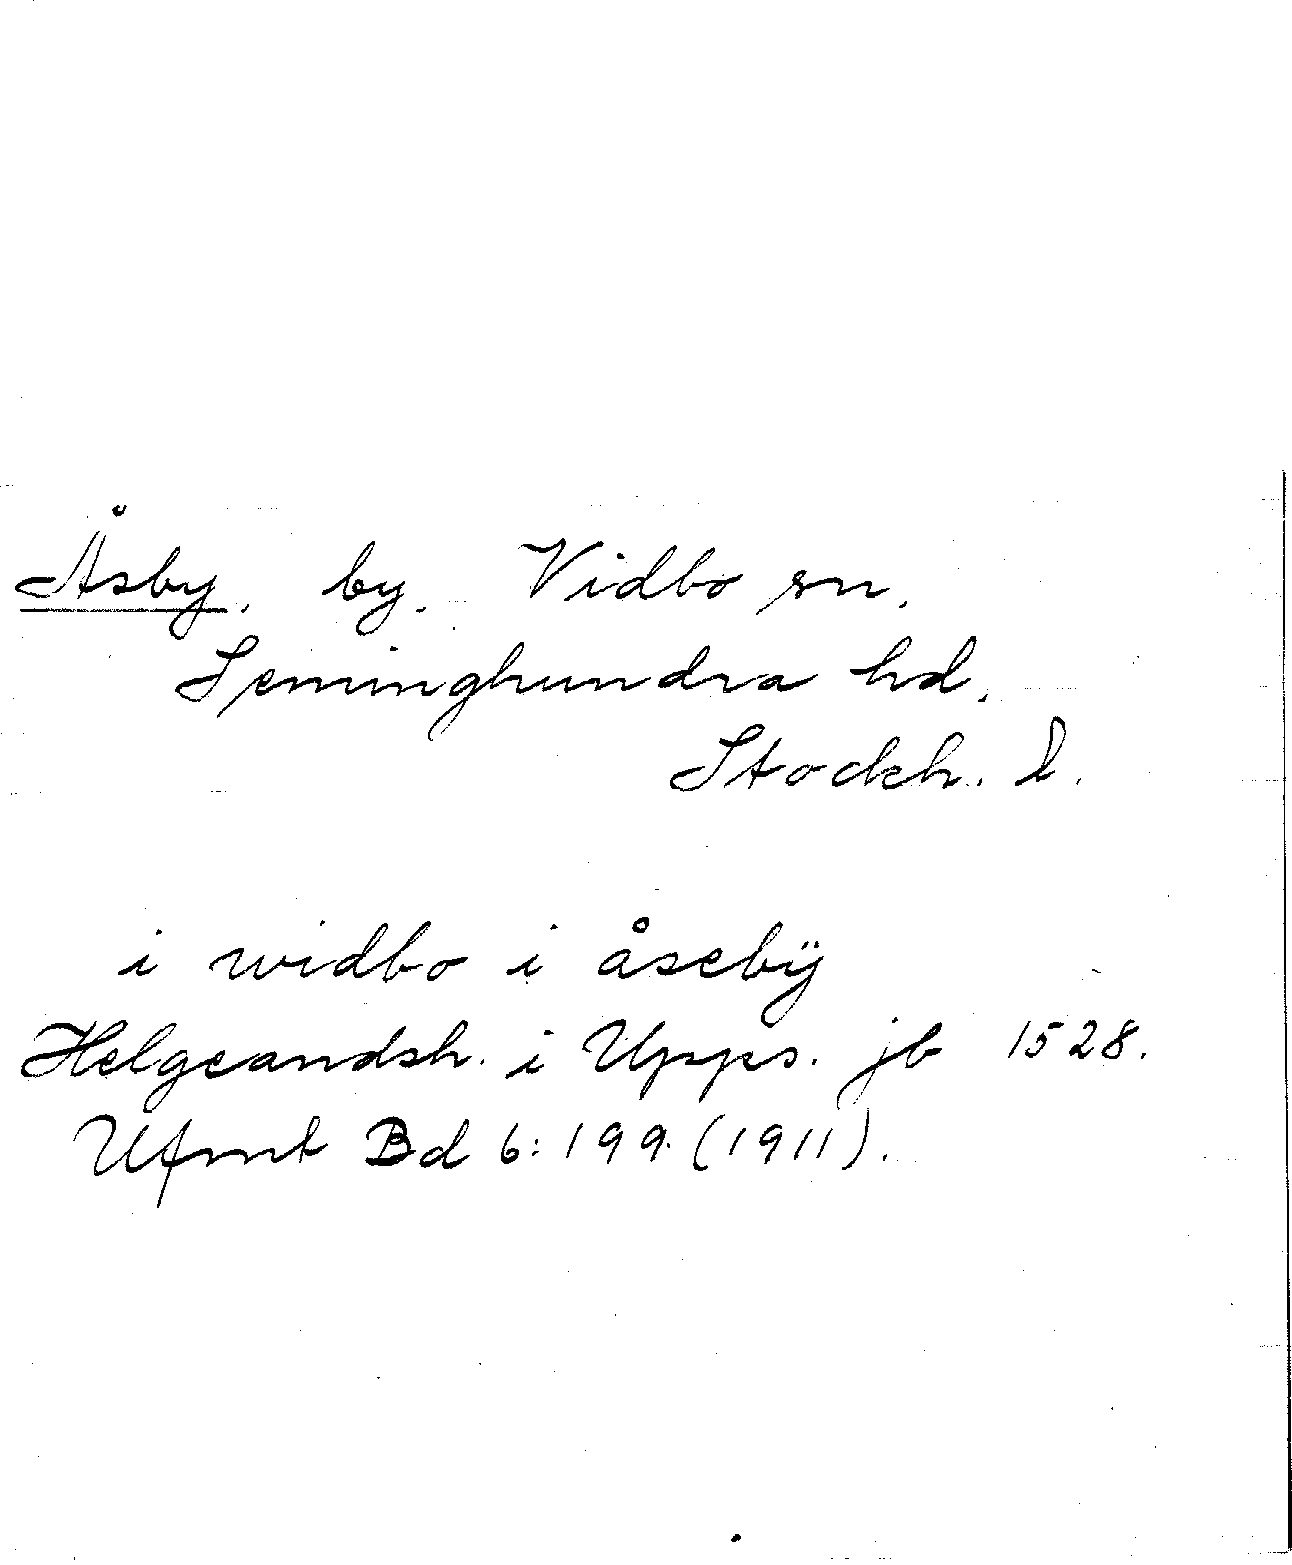 Åsby. by. Vidbo sn.
Seminghundra hd.
Stockh. l.
i widbo i åsebÿ
Helgeandsh. i Upps. jb 1528.
Ufmt Bd 6: 199. (1911).